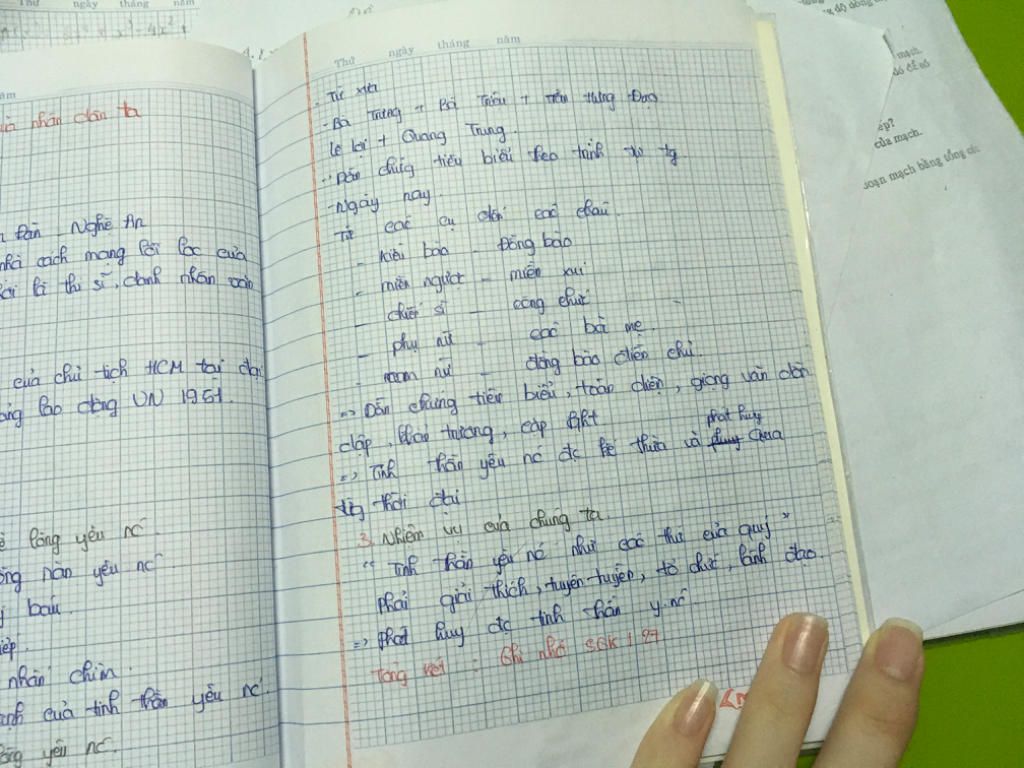 Thứ ngày tháng năm
ăm
uả nhân dân ta
Đàn - Nghệ An
nhà cách mạng lỗi lạc của
là thi sĩ, danh nhân văn
của chủ tịch HCM tại đại
lao động VN 1951.
lòng yêu nc
nồng nàn yêu nc
báu.
nhấn chìm.
của tinh thần yêu nc
lòng yêu nc.
Thứ ngày tháng năm
- Từ xưa
- Bà Trưng + Bà Triệu + Trần Hưng Đạo
Lê Lợi + Quang Trung.
-> Dẫn chứng tiêu biểu theo trình tự tg.
- Ngày nay.
Từ các cụ đến các cháu.
- kiều bào - Đồng bào
- miền ngược - miền xuôi
- chiến sĩ - công chức
- phụ nữ - các bà mẹ.
- nam nữ - đồng bào điền chủ.
=> Dẫn chứng tiêu biểu, toàn diện, giọng văn dồn
dập, khẩn trương, cặp QHT
=> Tinh thần yêu nc đc kế thừa và phát huy qua
từng thời đại
3. Nhiệm vụ của chúng ta.
" Tinh thần yêu nc như các thứ của quý "
phải giải thích, tuyên truyền, tổ chức, lãnh đạo.
=> phát huy đc tinh thần y.nc.
Tổng kết : Ghi nhớ SGK / 27
mạch.
ép?
của mạch.
đoạn mạch bằng tổng các